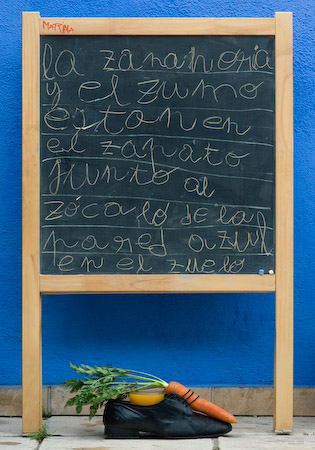 MARTINA
la zanahoria
y el zumo
estan en
el zapato
junto al
zócalo de la
pared azul
en el zuelo